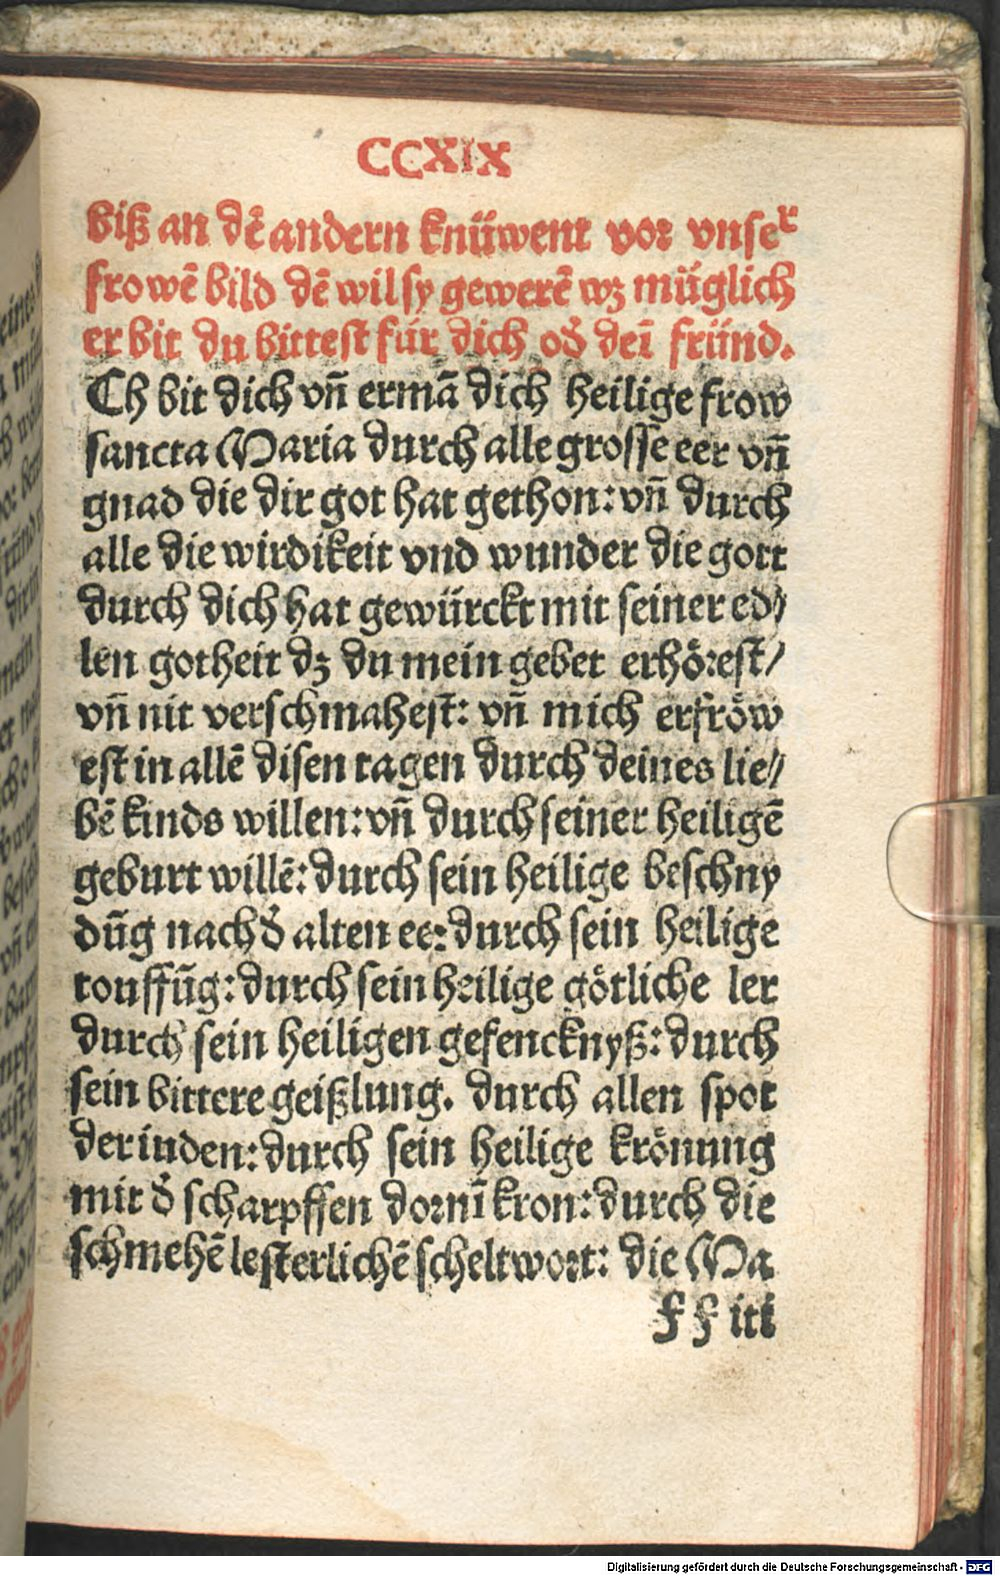 CCXIX
biß an dē andern knüwent vor vnser
frowē bild dē wil sy gewerē wz müglich
er bit du bittest für dich oď deī fründ.
Ch bit dich vn̄ ermā dich heilige frow
sancta Maria durch alle grosse eer vn̄
gnad die dir got hat gethon: vn̄ durch
alle die wirdikeit vnd wunder die gott
durch dich hat gewürckt mit seiner ed/
len gotheit dz du mein gebet erhörest/
vn̄ nit verschmahest: vn̄ mich erfröw
est in allē disen tagen durch deines lie/
bē kinds willen: vn̄ durch seiner heiligē
geburt willē: durch sein heilige beschny
dūg nach ď alten ee: durch sein heilige
touffūg: durch sein heilige götliche ler
durch sein heiligen gefencknyß: durch
sein bittere geißlung. durch allen spot
der iuden: durch sein heilige krönung
mit ď scharpffen dornī kron: durch die
schmehē lesterlichē scheltwort: die Ma
ff iii
Digitalisierung gefördert durch die Deutsche Forschungsgemeinschaft - DFG